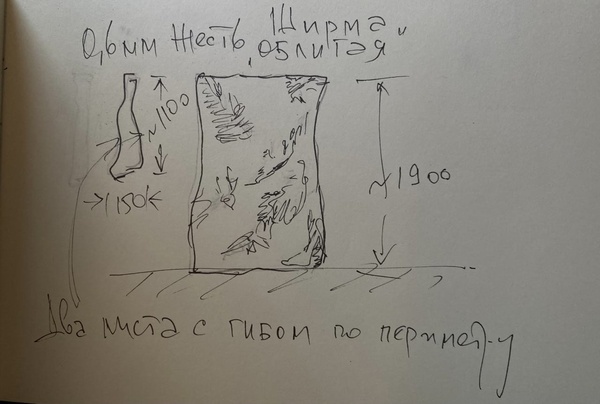 Ширма
0,6мм Жесть „облитая"
~1100
~1900
150
Два листа с гибом по периметру